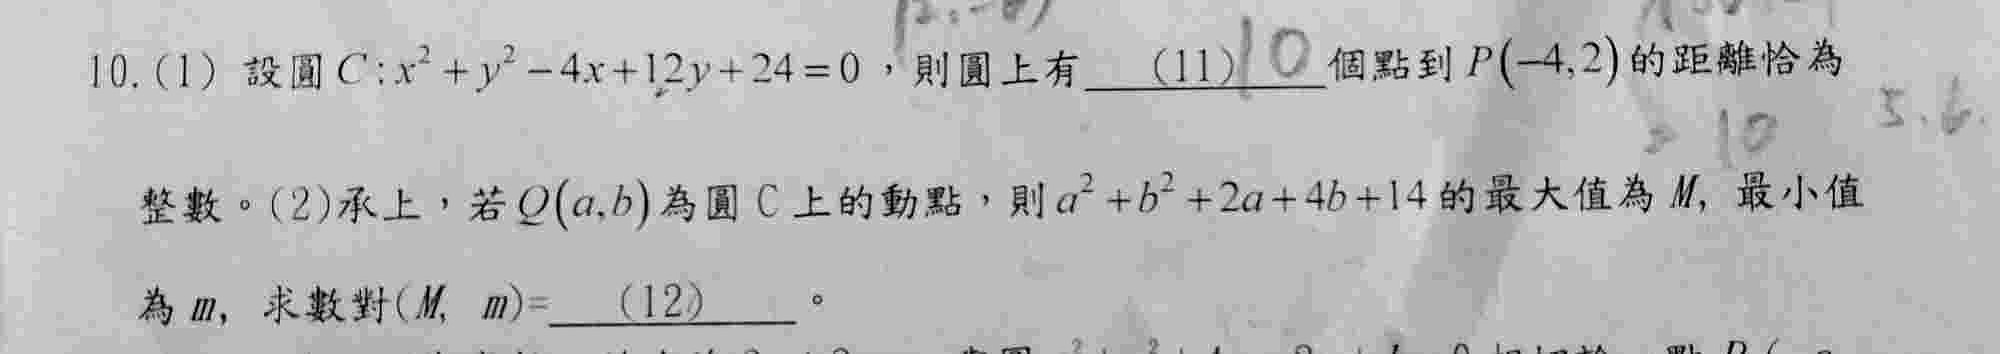 10.(1) 設圓 C:x²+y²−4x+12y+24=0，則圓上有 (11) 10 個點到 P(−4,2) 的距離恰為
10 5.6.
整數。(2)承上，若 Q(a,b) 為圓 C 上的動點，則 a²+b²+2a+4b+14 的最大值為 M, 最小值
為 m, 求數對(M, m)= (12) 。